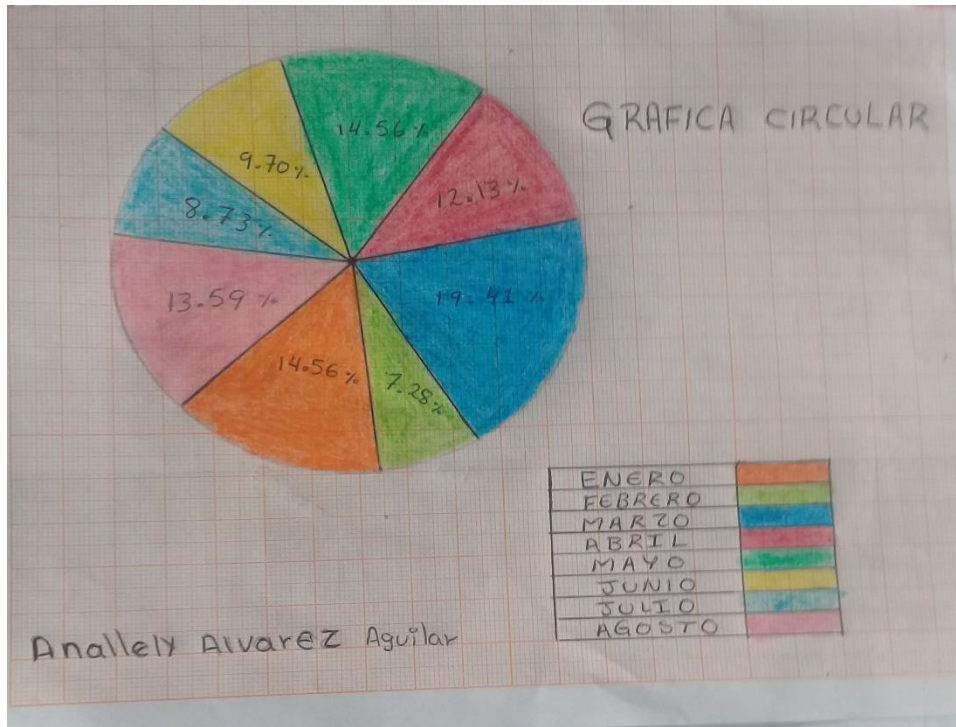 GRAFICA CIRCULAR
14.56%
9.70%
12.13%
8.73%
19.41 %
13.59 %
14.56%
7.28%
ENERO
FEBRERO
MARZO
ABRIL
MAYO
JUNIO
JULIO
AGOSTO
Anallely Alvarez Aguilar